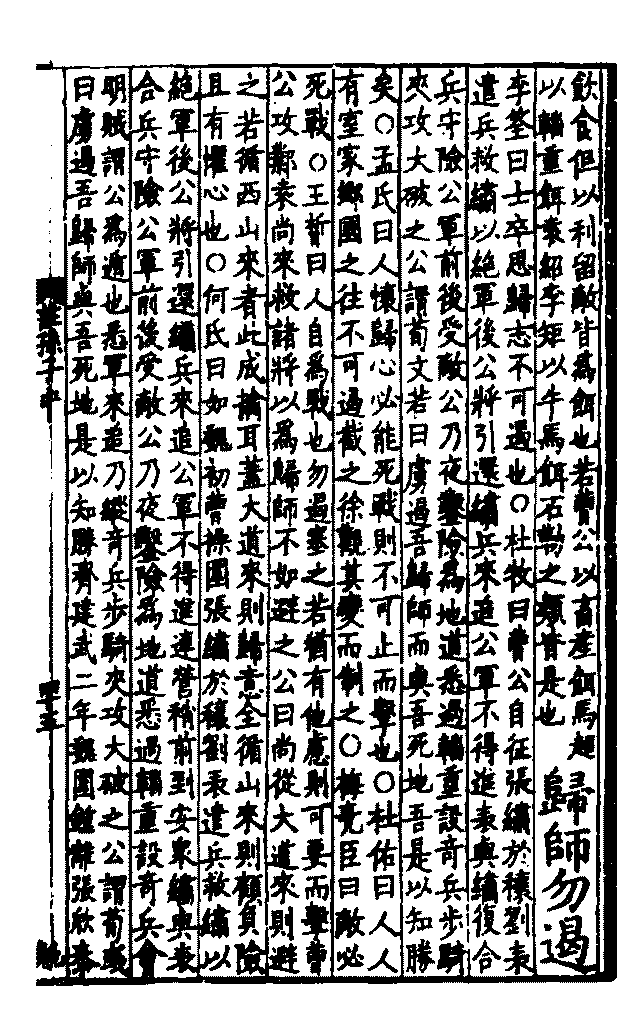 飲食但以利留敵皆爲餌也若曹公以畜產餌馬超
以輜重餌袁紹李矩以牛馬餌石勒之類皆是也
歸師勿遏
李筌曰士卒思歸志不可遏也○杜牧曰曹公自征張繡於穰劉表
遣兵救繡以絕軍後公將引還繡兵來追公軍不得進表與繡復合
兵守險公軍前後受敵公乃夜鑿險爲地道悉過輜重設奇兵步騎
夾攻大破之公謂荀文若曰虜遏吾歸師而與吾死地吾是以知勝
矣○孟氏曰人懷歸心必能死戰則不可止而擊也○杜佑曰人人
有室家鄉國之往不可遏截之徐觀其變而制之○梅堯臣曰敵必
死戰○王晳曰人自爲戰也勿遏塞之若猶有他慮則可要而擊曹
公攻鄴袁尚來救諸將以爲歸師不如避之公曰尚從大道來則避
之若循西山來者此成擒耳蓋大道來則歸意全循山來則顧負險
且有懼心也○何氏曰如魏初曹操圍張繡於穰劉表遣兵救繡以
絕軍後公將引還繡兵來追公軍不得進連營稍前到安衆繡與表
合兵守險公軍前後受敵公乃夜鑿險爲地道悉過輜重設奇兵會
明賊謂公爲遁也悉軍來追乃縱奇兵步騎夾攻大破之公謂荀彧
曰虜遏吾歸師與吾死地是以知勝齊建武二年魏圍鍾離張欣泰
孫子中